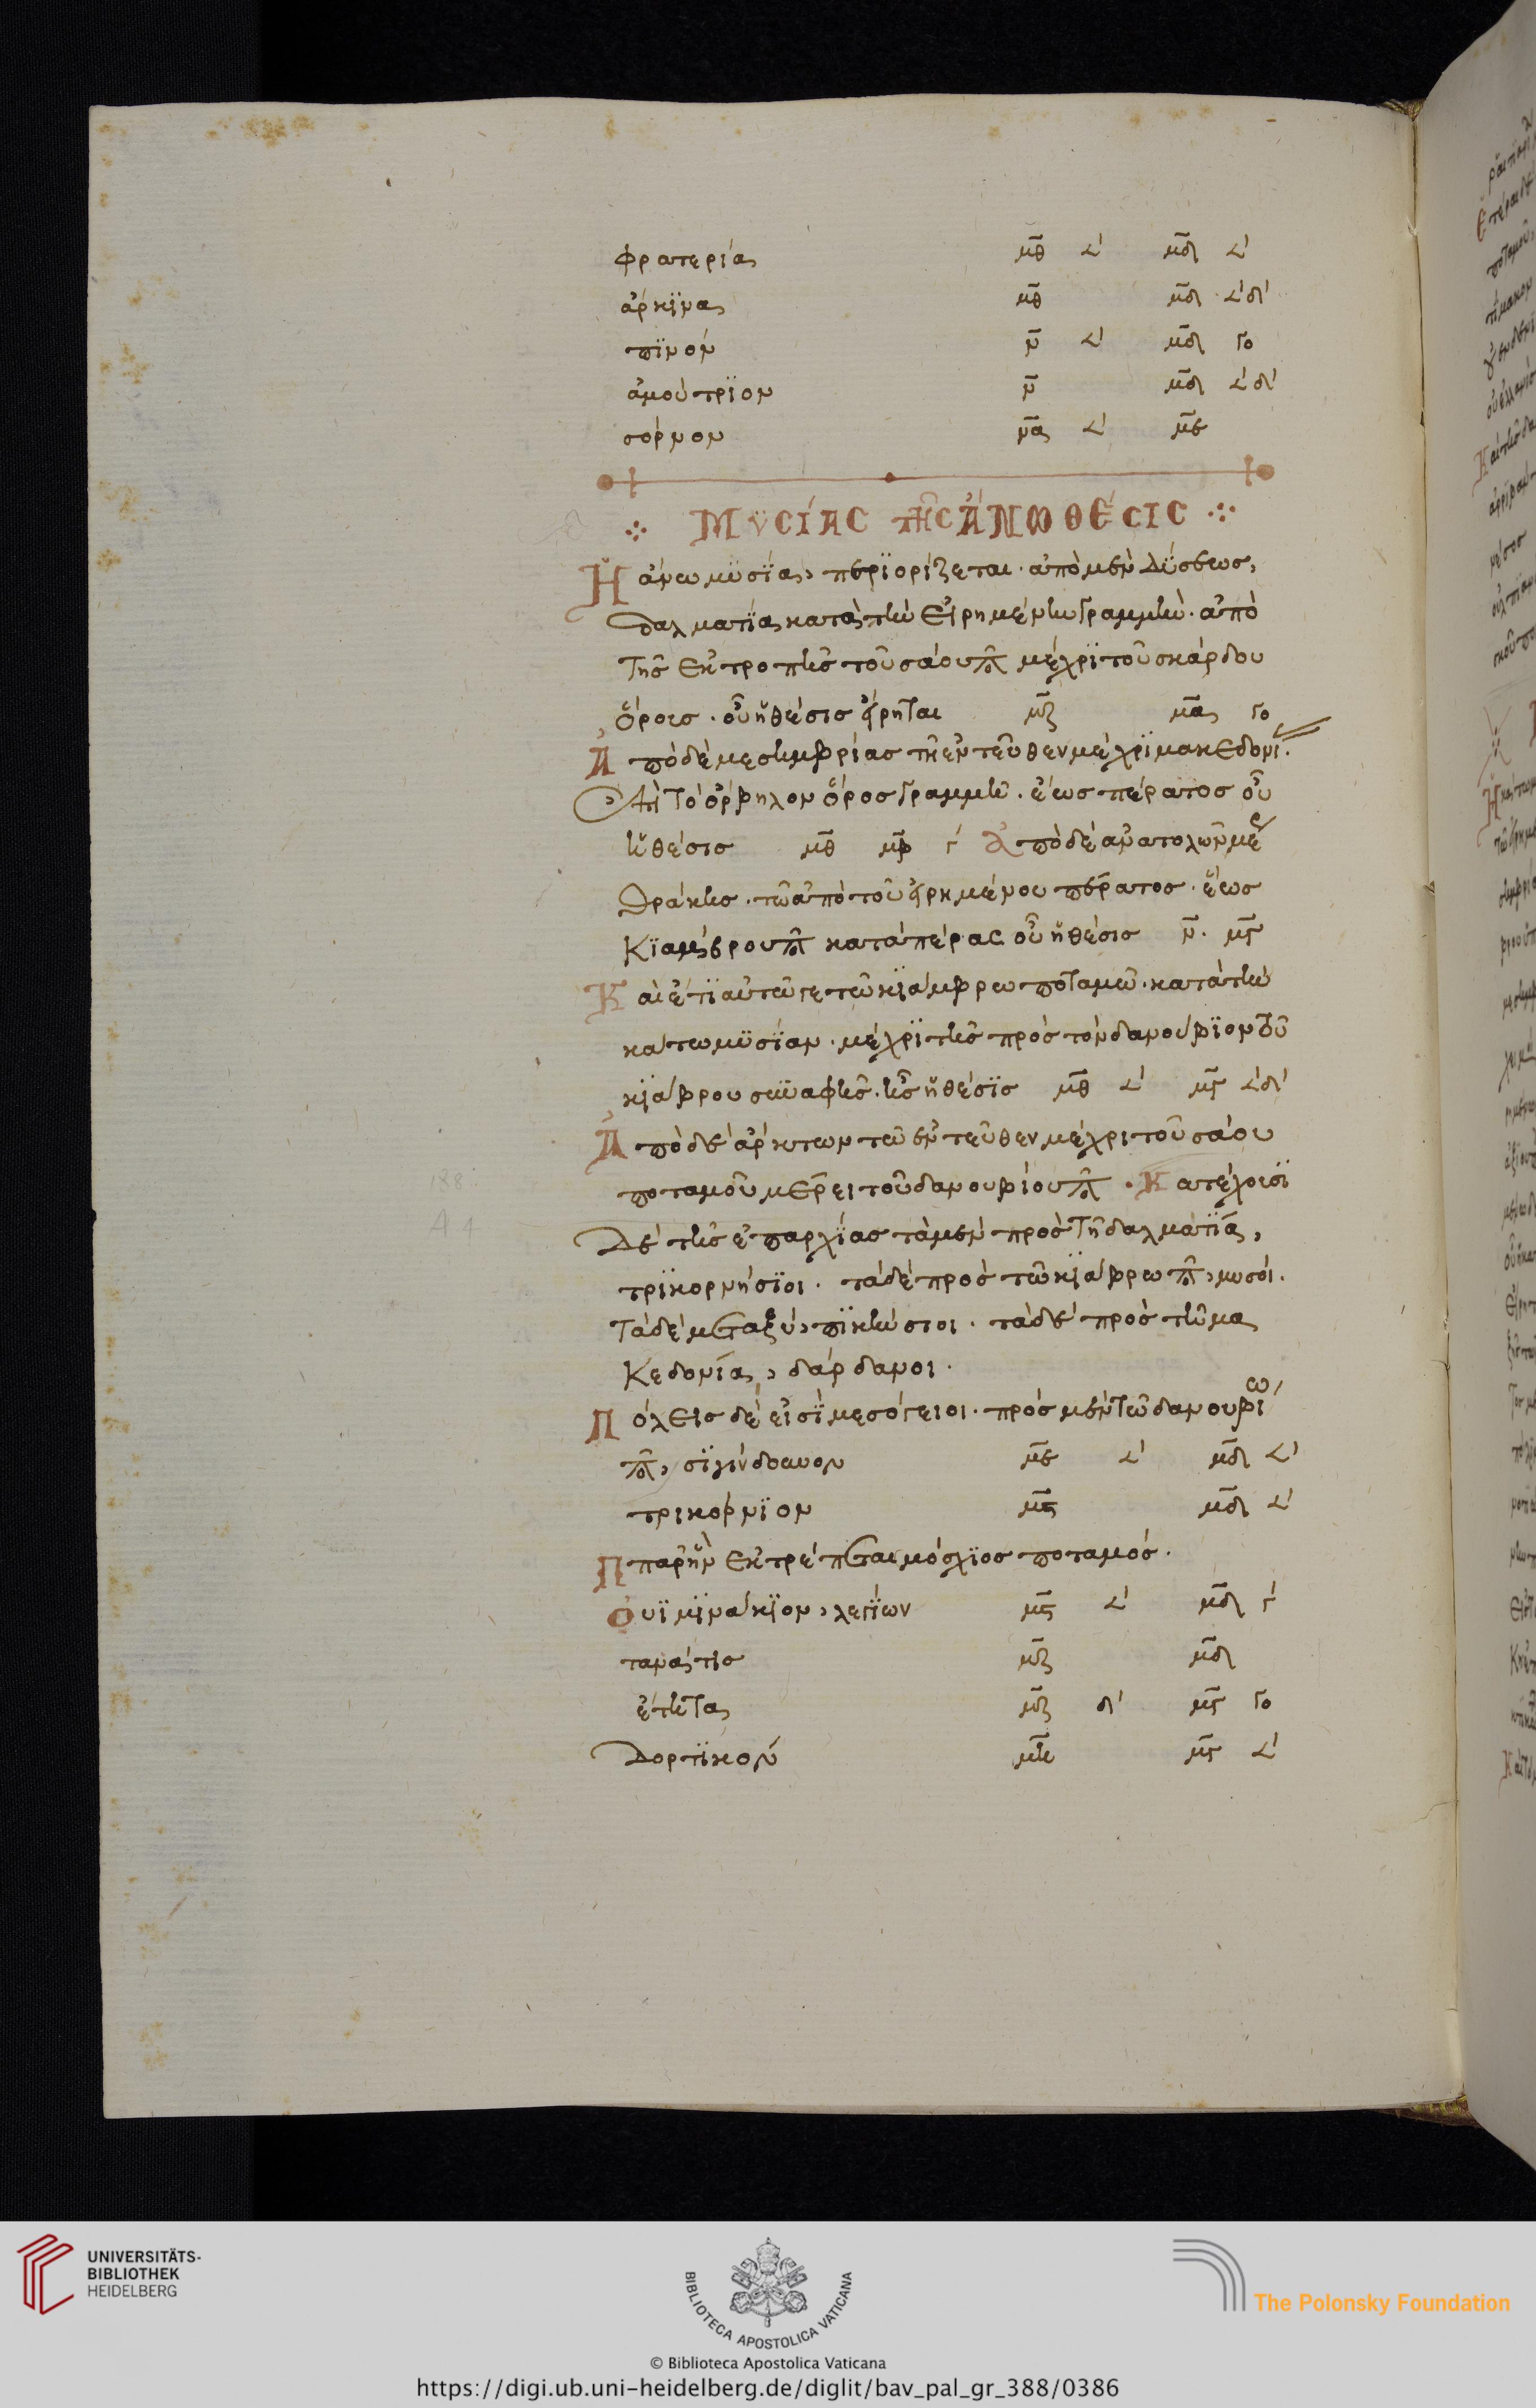 φρατερίας μθ 𐅵 μδ 𐅵
ἀρκίννας μθ μδ 𐅵δ'
πϊνόν ν 𐅵 μδ γο
ἀμούτρϊον ν μδ 𐅵δ'
σόρνον να 𐅵 με
ΜΥΣΊΑΣ ΤΗ͂Σ ἌΝΩ ΘΈΣΙΣ
Ἡ ἄνω μϋσΐας, περϊορίζεται · ἀπὸ μὲν δΰσεως,
δαλματΐας κατὰ τὴν εἰρημένην γραμμὴν · ἀπὸ
τῆς ἐκτροπῆς τοῦ σάου π μέχρϊ τοῦ σκάρδου
ὄροις · οὗ ἡ θέσις εἴρηται μζ μα γο
Ἀπὸ δὲ μεσημβρίας τῆ ἐντεῦθεν μέχρϊ μακεδονί
ἐπὶ τὸ ὄρβηλον ὄρος γραμμῆ · ἕως πέρατος οὗ
ἡ θέσις μθ μβ γ Ἀπὸ δὲ ἀνατολῶν μὲ
θράκης · τῶ ἀπὸ τοῦ εἰρημένου πέρατος · ἕως
Κϊαμβρου π κατὰ πέρας οὗ ἡ θέσις ν · μγ
Καὶ ἔτϊ αὐτῶ γε τῶ κϊάμβρω ποταμῶ · κατὰ τὴν
κάτω μϋσΐαν · μέχρϊ τῆς πρὸς τὸν δανούβϊον τοῦ
κϊάβρου συναφῆς · ἧς ἡ θέσϊς μθ 𐅵 μγ 𐅵δ'
Ἀπὸ δὲ ἄρκτων τῶ ἐντεῦθεν μέχρι τοῦ σάου
ποταμοῦ μέρει τοῦ δανουβίου π · Κατέχουσϊ
δὲ τῆς ἐπαρχΐας τὰ μὲν πρὸς τῆ δαλματΐα,
τρϊκορνήσϊοι · τὰ δὲ πρὸς τῶ κϊάβρω π, μυσοί ·
Τὰ δὲ μεταξύ, πϊκήνσιοι · τὰ δὲ πρὸς τῆ μα
Κεδονία, δάρδανοι ·
Πόλεις δέ εἰσϊ μεσόγειοι · πρὸς μὲν τῶ δανουβί
ω
π, σϊγίνδουνον με 𐅵 μδ 𐅵
τρικόρνϊον μς μδ 𐅵
Ππαρ' ἣν ἐκτρέπεται μόσχϊος ποταμός ·
Οὐϊμϊνάκϊον, λεγΐων μς 𐅵 μδ γ
τανάτις μζ μδ
ἔτητα μζ δ' μγ γο
Δορτϊκόν μη μγ 𐅵
188
UNIVERSITÄTS-
BIBLIOTHEK
HEIDELBERG
BIBLIOTECA APOSTOLICA VATICANA
The Polonsky Foundation
© Biblioteca Apostolica Vaticana
https://digi.ub.uni-heidelberg.de/diglit/bav_pal_gr_388/0386